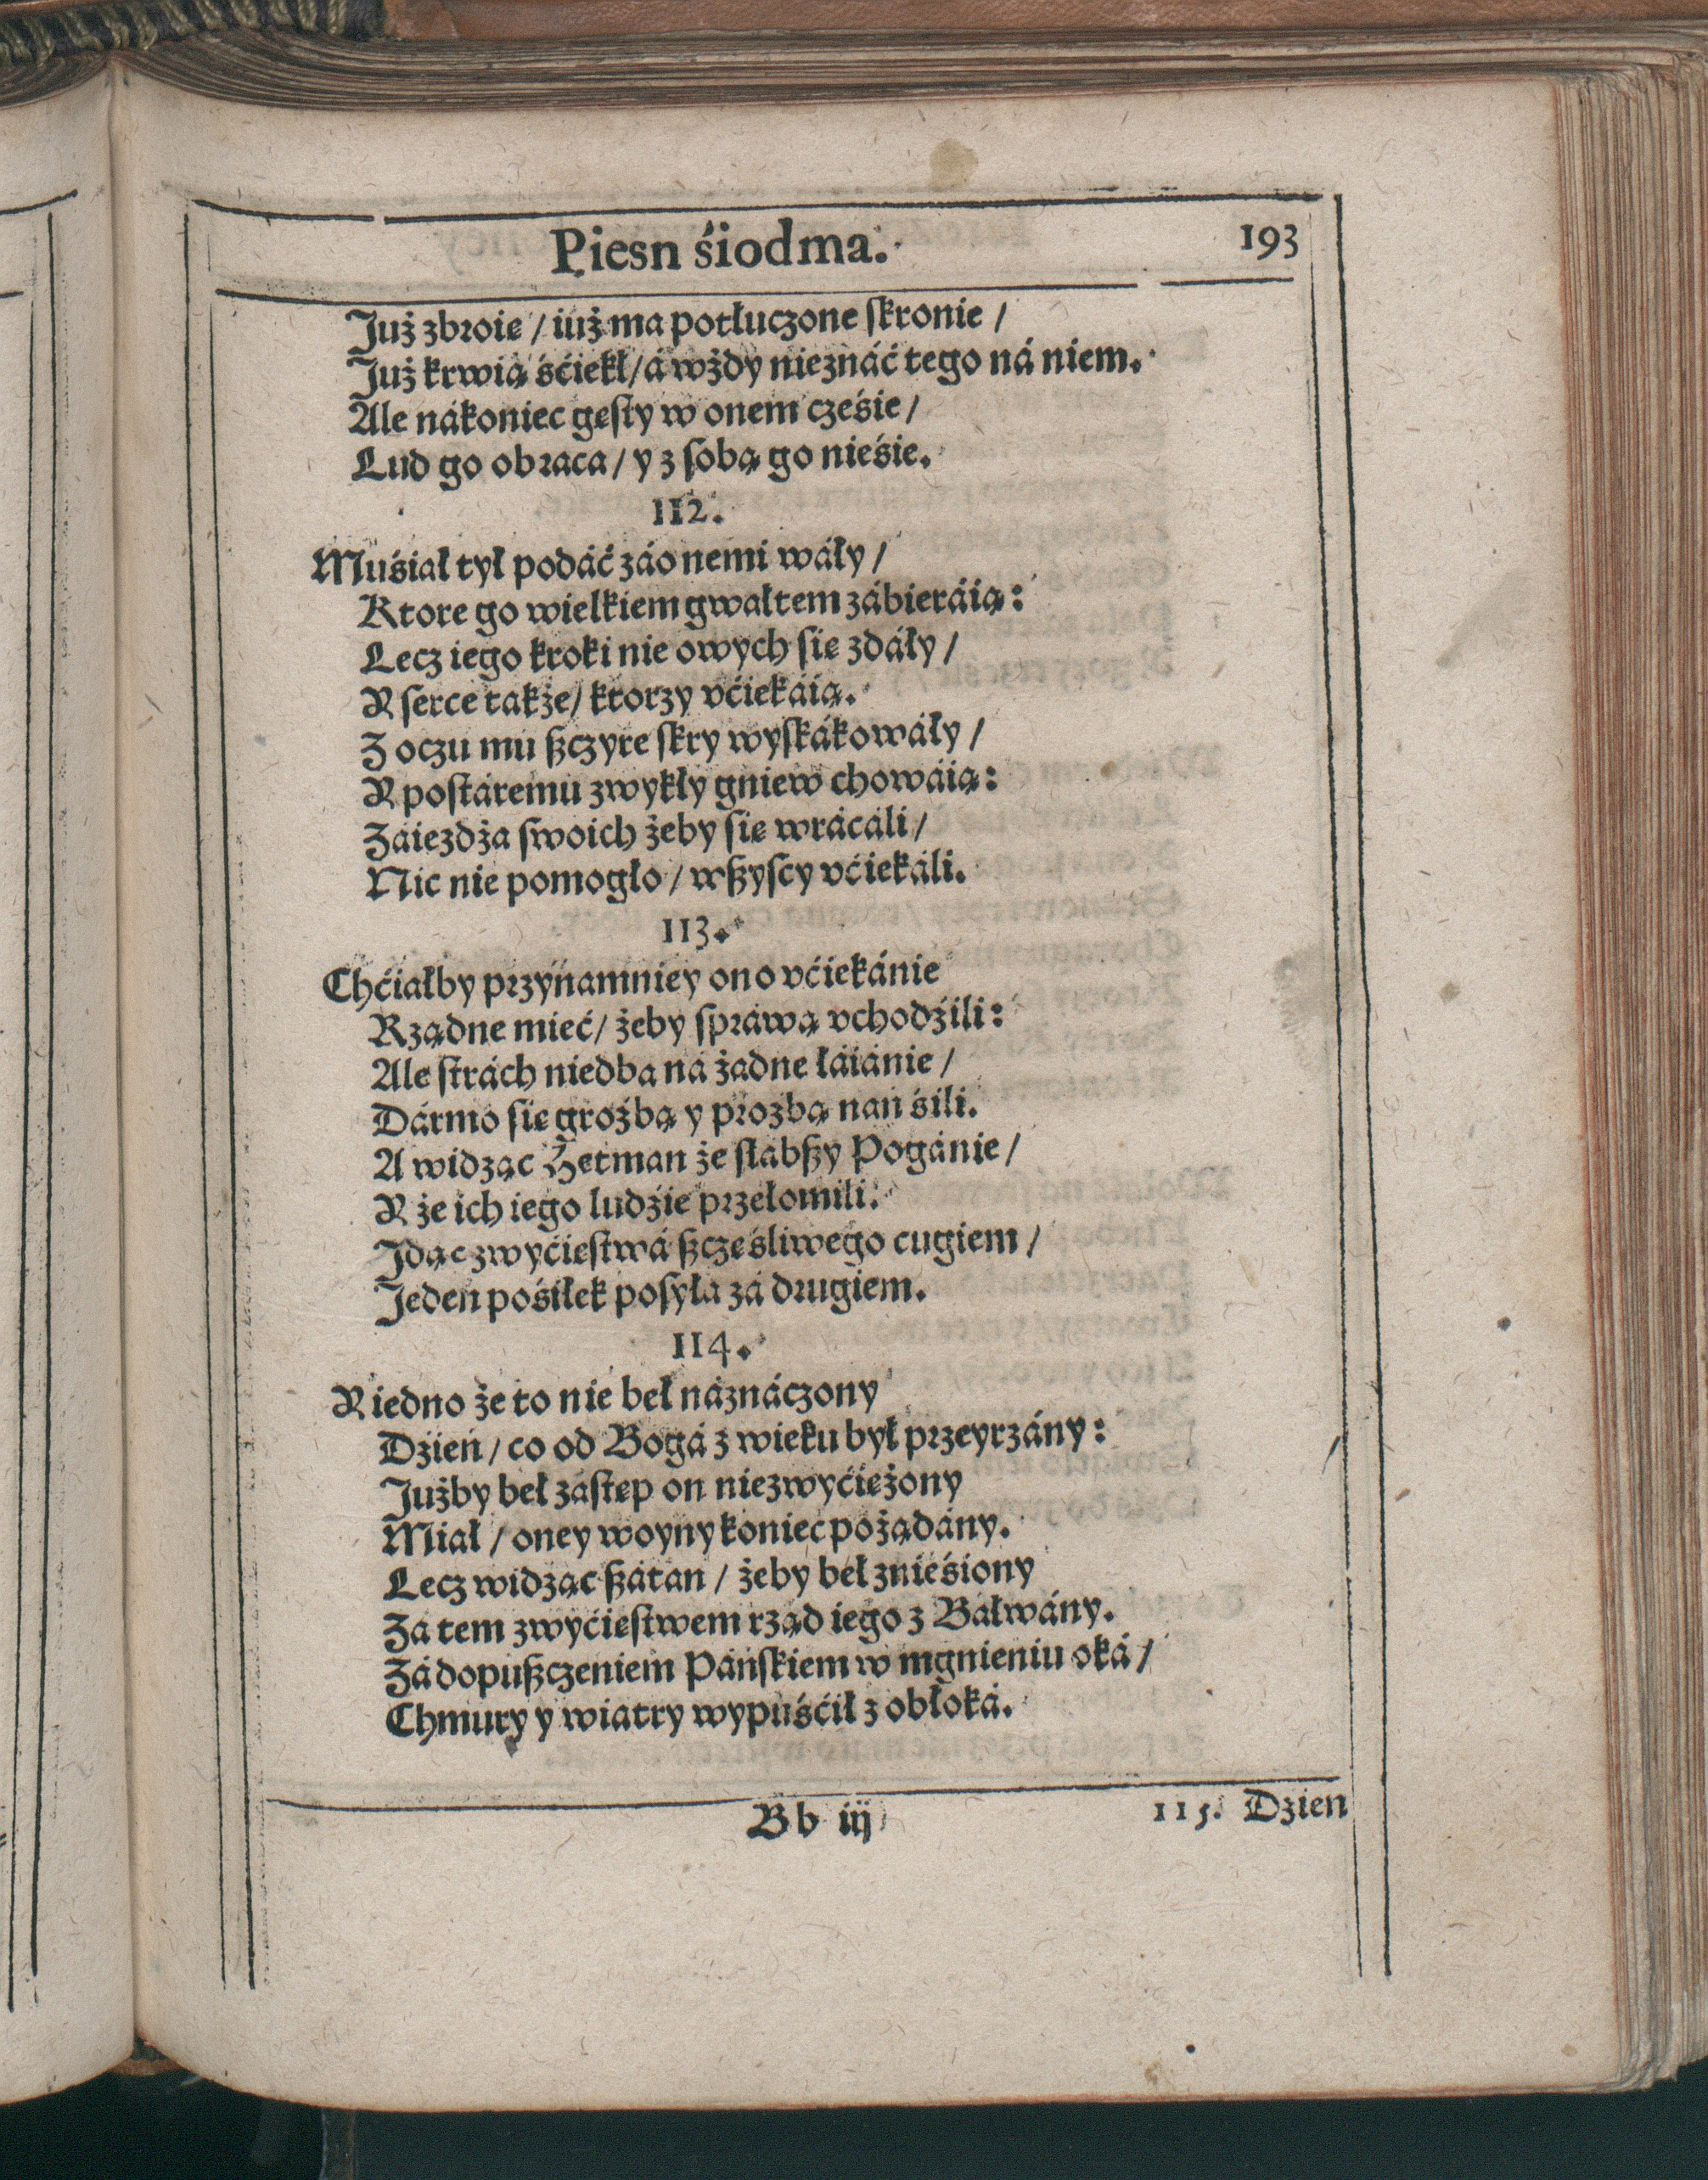 Piesn śiodma. 193
Już zbroię / iuż ma potłuczone ſkronie /
Już krwią śćiekł / á wżdy nieznáć tego ná niem.
Ale nákoniec gęſty w onem cześie /
Lud go obraca / y z ſobą go nieśie.
112.
Muśiał tył podáć zá onemi wáły /
Ktore go wielkiem gwałtem zábieráią:
Lecz iego kroki nie owych ſię zdáły /
Y ſerce także / ktorzy vćiekáią.
Z oczu mu ßczyre ſkry wyſkákowáły /
Y poſtáremu zwykły gniew chowáią:
Záiezdża ſwoich żeby ſię wrácáli /
Nic nie pomogło / wßyſcy vćiekáli.
113.
Chćiałby przynamniey ono vćiekánie
Rządne mieć / żeby ſpráwą vchodźili:
Ale ſtrách niedba ná żadne łáiánie /
Dármo ſię groźbą y prozbą nań śili.
A widząc Hetman że ſłabßy Pogánie /
Y że ich iego ludźie przełomili:
Jdąc zwyćięſtwá ßczęśliwego cugiem /
Jeden pośiłek poſyła zá drugiem.
114.
Y iedno że to nie beł náznáczony
Dźień / co od Bogá z wieku był przeyrzány:
Jużby beł zaſtęp on niezwyćiężony
Miał / oney woyny koniec pożądány.
Lecz widząc ßátan / żeby beł znieśiony
Za tem zwyćięſtwem rząd iego z Báłwány.
Zá dopußczeniem Páńſkiem w mgnieniu oká /
Chmury y wiatry wypuśćił z obłoká.
Bb iij 115. Dzien